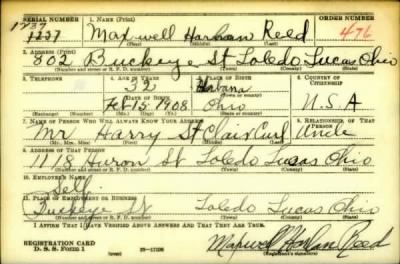 SERIAL NUMBER 1. NAME (Print) ORDER NUMBER
1237
1237 Maxwell Harlan Reed 476
2. ADDRESS (Print)
802 Buckeye St Toledo Lucas Ohio
(Number and street or R. F. D. number) (Town) (County) (State)
3. TELEPHONE 4. AGE IN YEARS 5. PLACE OF BIRTH 6. COUNTRY OF CITIZENSHIP
32 Urbana
DATE OF BIRTH (Town or county)
Feb 15 1908 Ohio U.S.A
(Mo.) (Day) (Yr.) (State or country)
7. NAME OF PERSON WHO WILL ALWAYS KNOW YOUR ADDRESS 8. RELATIONSHIP OF THAT PERSON
Mr Harry St Clair Curl Uncle
(Mr., Mrs., Miss) (First) (Middle) (Last)
9. ADDRESS OF THAT PERSON
1118 Huron St Toledo Lucas Ohio
(Number and street or R. F. D. number) (Town) (County) (State)
10. EMPLOYER'S NAME
Self
11. PLACE OF EMPLOYMENT OR BUSINESS
Buckeye St Toledo Lucas Ohio
(Number and street or R. F. D. number) (Town) (County) (State)
I AFFIRM THAT I HAVE VERIFIED ABOVE ANSWERS AND THAT THEY ARE TRUE.
REGISTRATION CARD
D. S. S. Form 1 Maxwell Harlan Reed
(Registrant's signature)